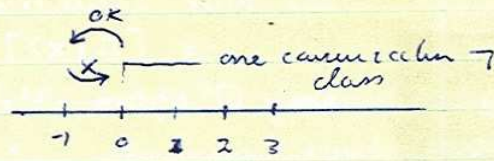 OK
X
one communication
class
-1 0 1 2 3